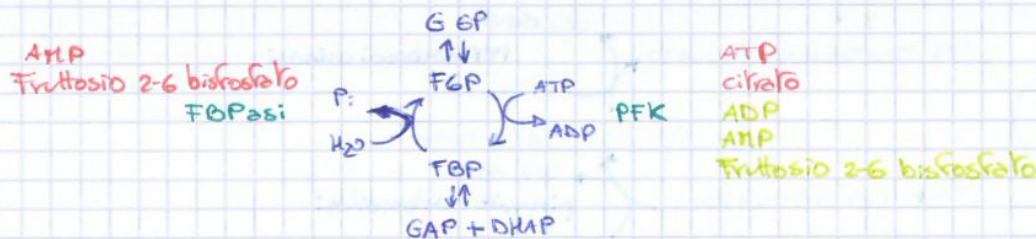 G 6P
AMP
Fruttosio 2-6 bisfosfato
FBPasi
Pi
H2O
F6P
ATP
ADP
PFK
FBP
GAP + DHAP
ATP
citrato
ADP
AMP
Fruttosio 2-6 bisfosfato